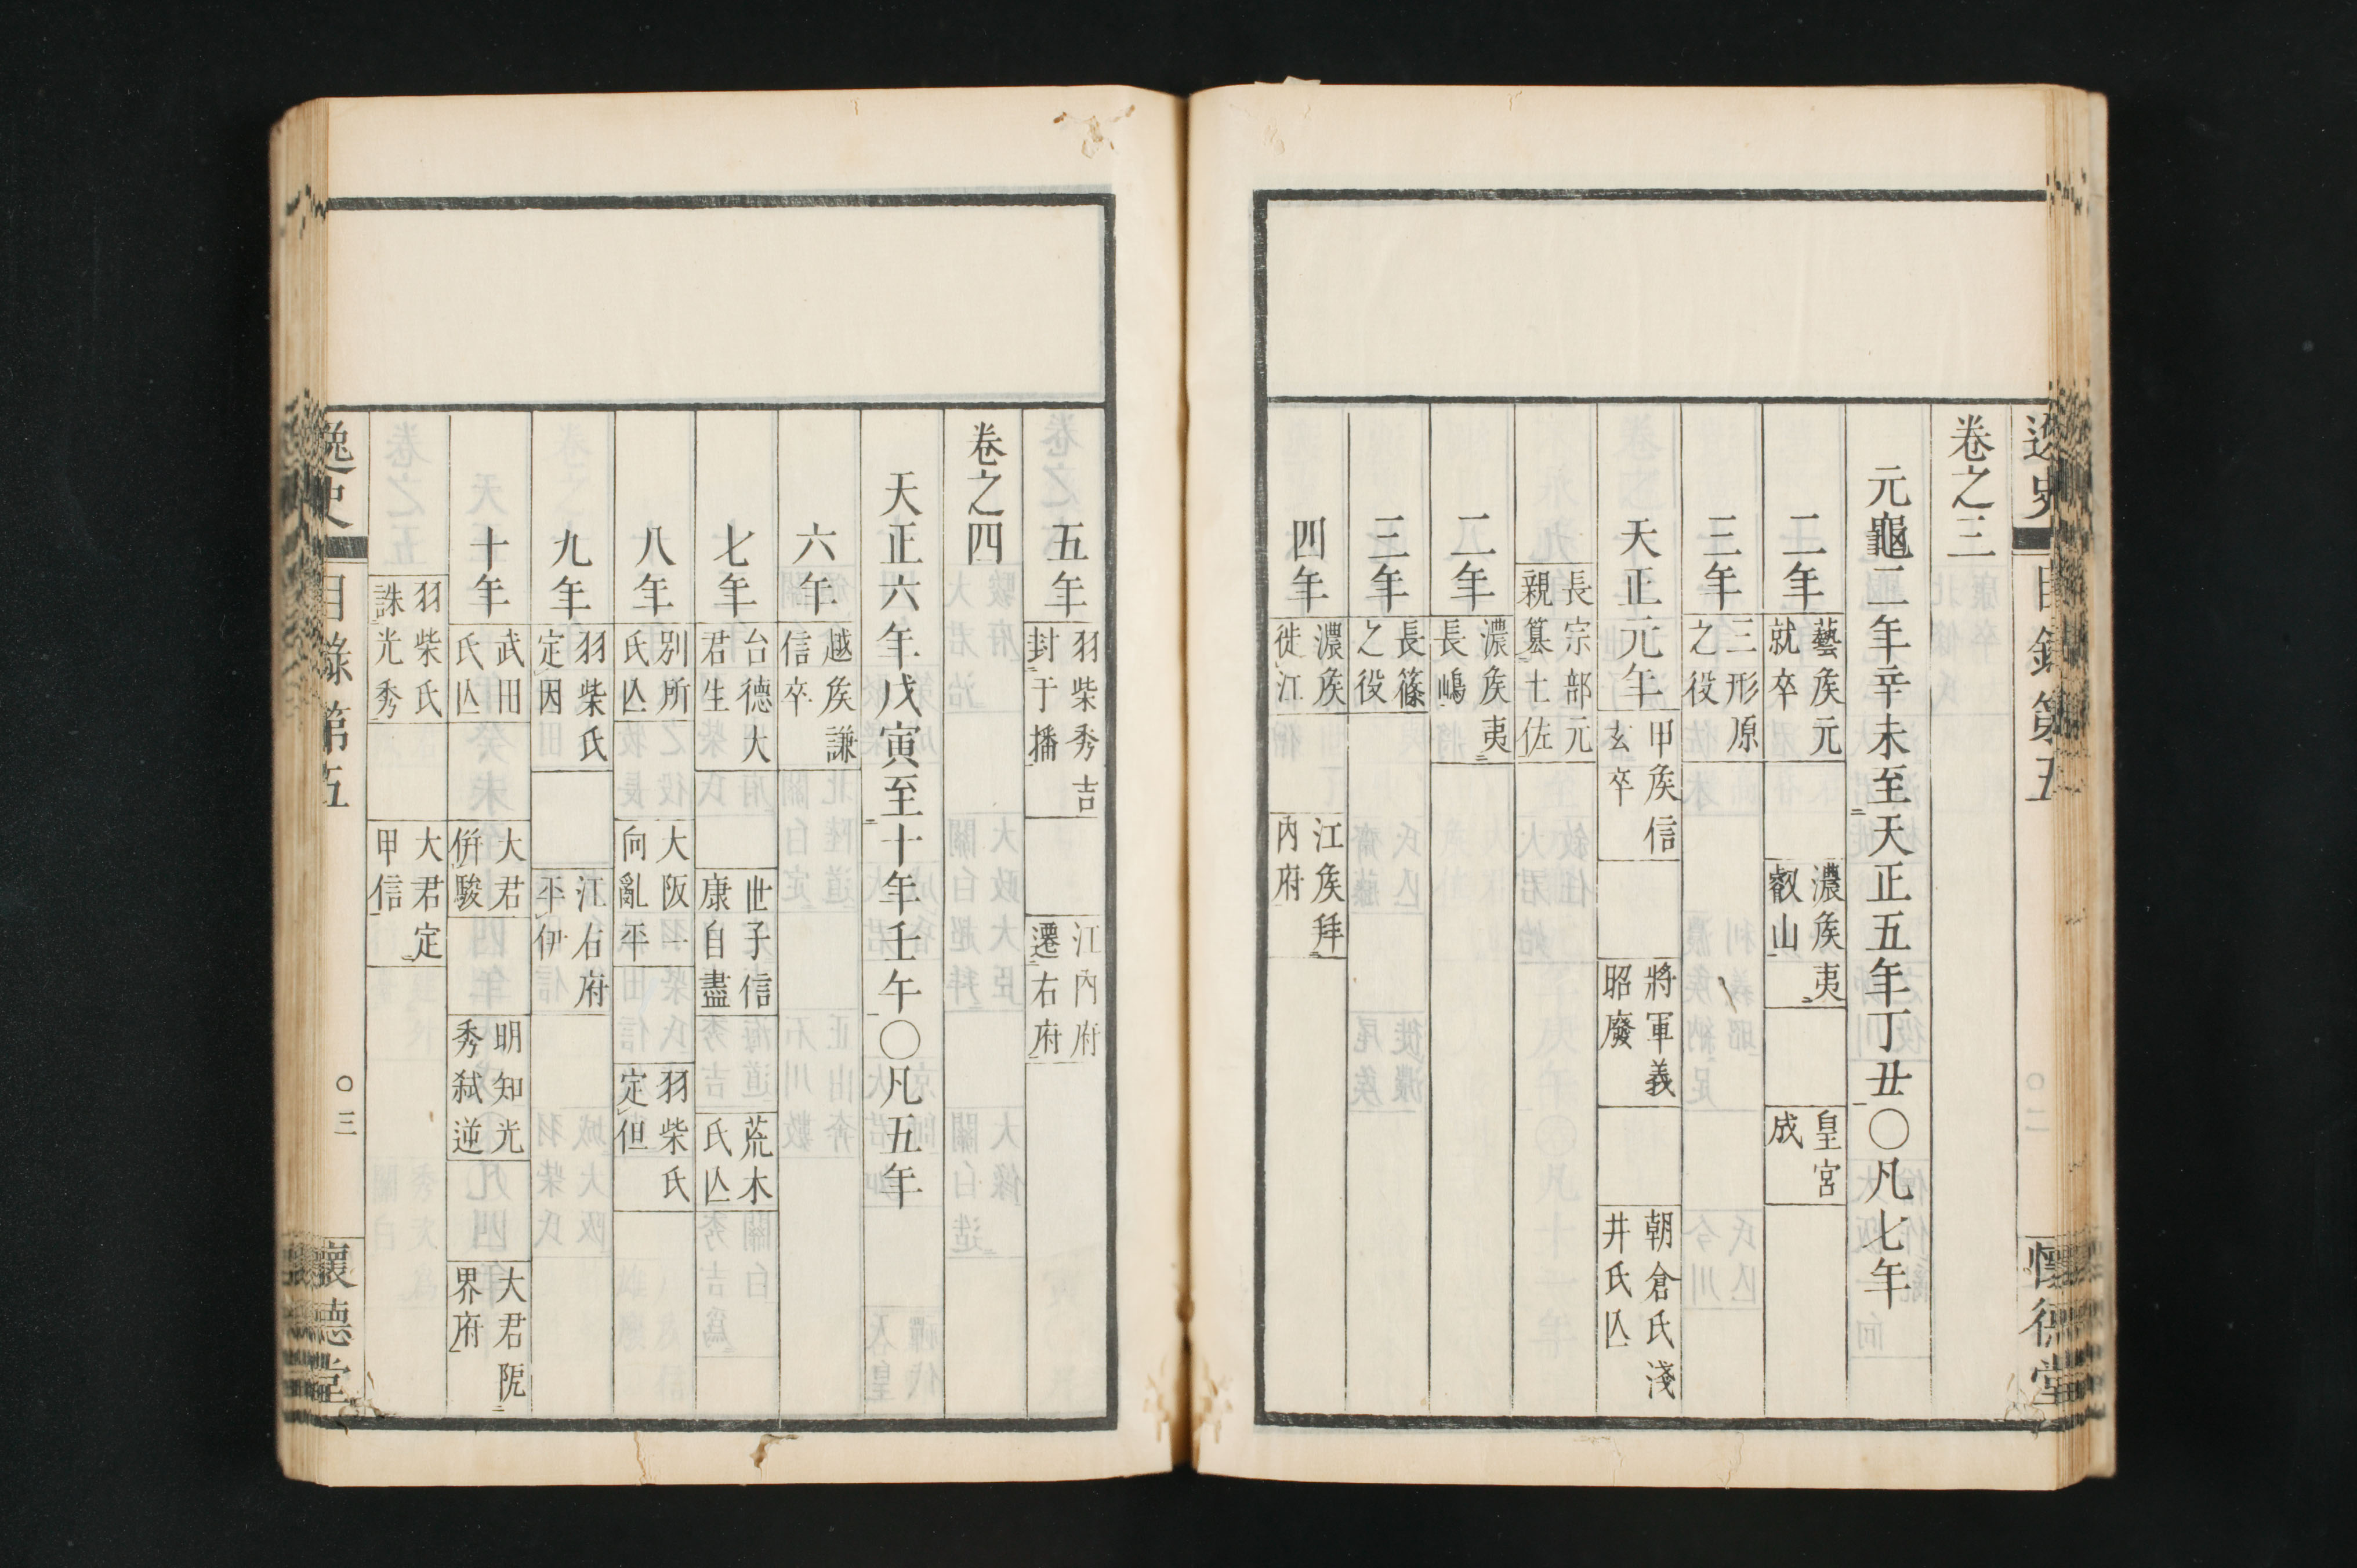 逸史
目錄第五
懷德堂
卷之三
元龜二年辛未至天正五年丁丑〇凡七年
二年
藝矦元
就卒
濃矦夷
叡山
皇宮
成
三年
三形原
之役
天正元年
甲矦信
玄卒
將軍義
昭廢
朝倉氏淺
井氏亾
長宗部元
親簒土佐
二年
濃矦夷
長嶋
三年
長篠
之役
四年
濃矦
徙江
江矦拜
內府
五年
羽柴秀吉
封于播
江內府
遷右府
卷之四
天正六年戊寅至十年壬午〇凡五年
六年
越矦謙
信卒
七年
台德大
君生
世子信
康自盡
荒木
氏亾
八年
別所
氏亾
大阪一
向亂平
羽柴氏
定但
九年
羽柴氏
定因
江右府
平伊
十年
武田
氏亾
大君
併駿
明知光
秀弑逆
大君阨
界府
羽柴氏
誅光秀
大君定
甲信
逸史
目錄第五
〇三
懷德堂